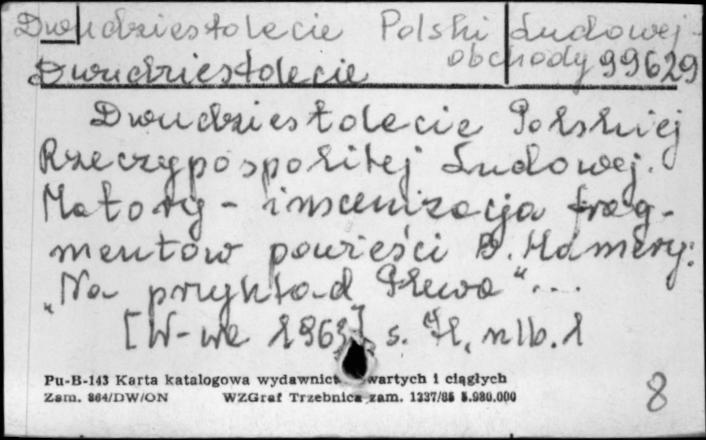 Dwudziestolecie Polski Ludowej -
obchody 99629
Dwudziestolecie
Dwudziestolecie Polskiej
Rzeczypospolitej Ludowej.
Matory - inscenizacja frag-
mentów powieści B. Hamery:
"Na przykład Plewa"...
[W-wa 1963] s. nlb. 1
Pu-B-143 Karta katalogowa wydawnict wartych i ciągłych
Zam. 864/DW/ON WZGraf Trzebnica zam. 1237/85 5.980.000
8